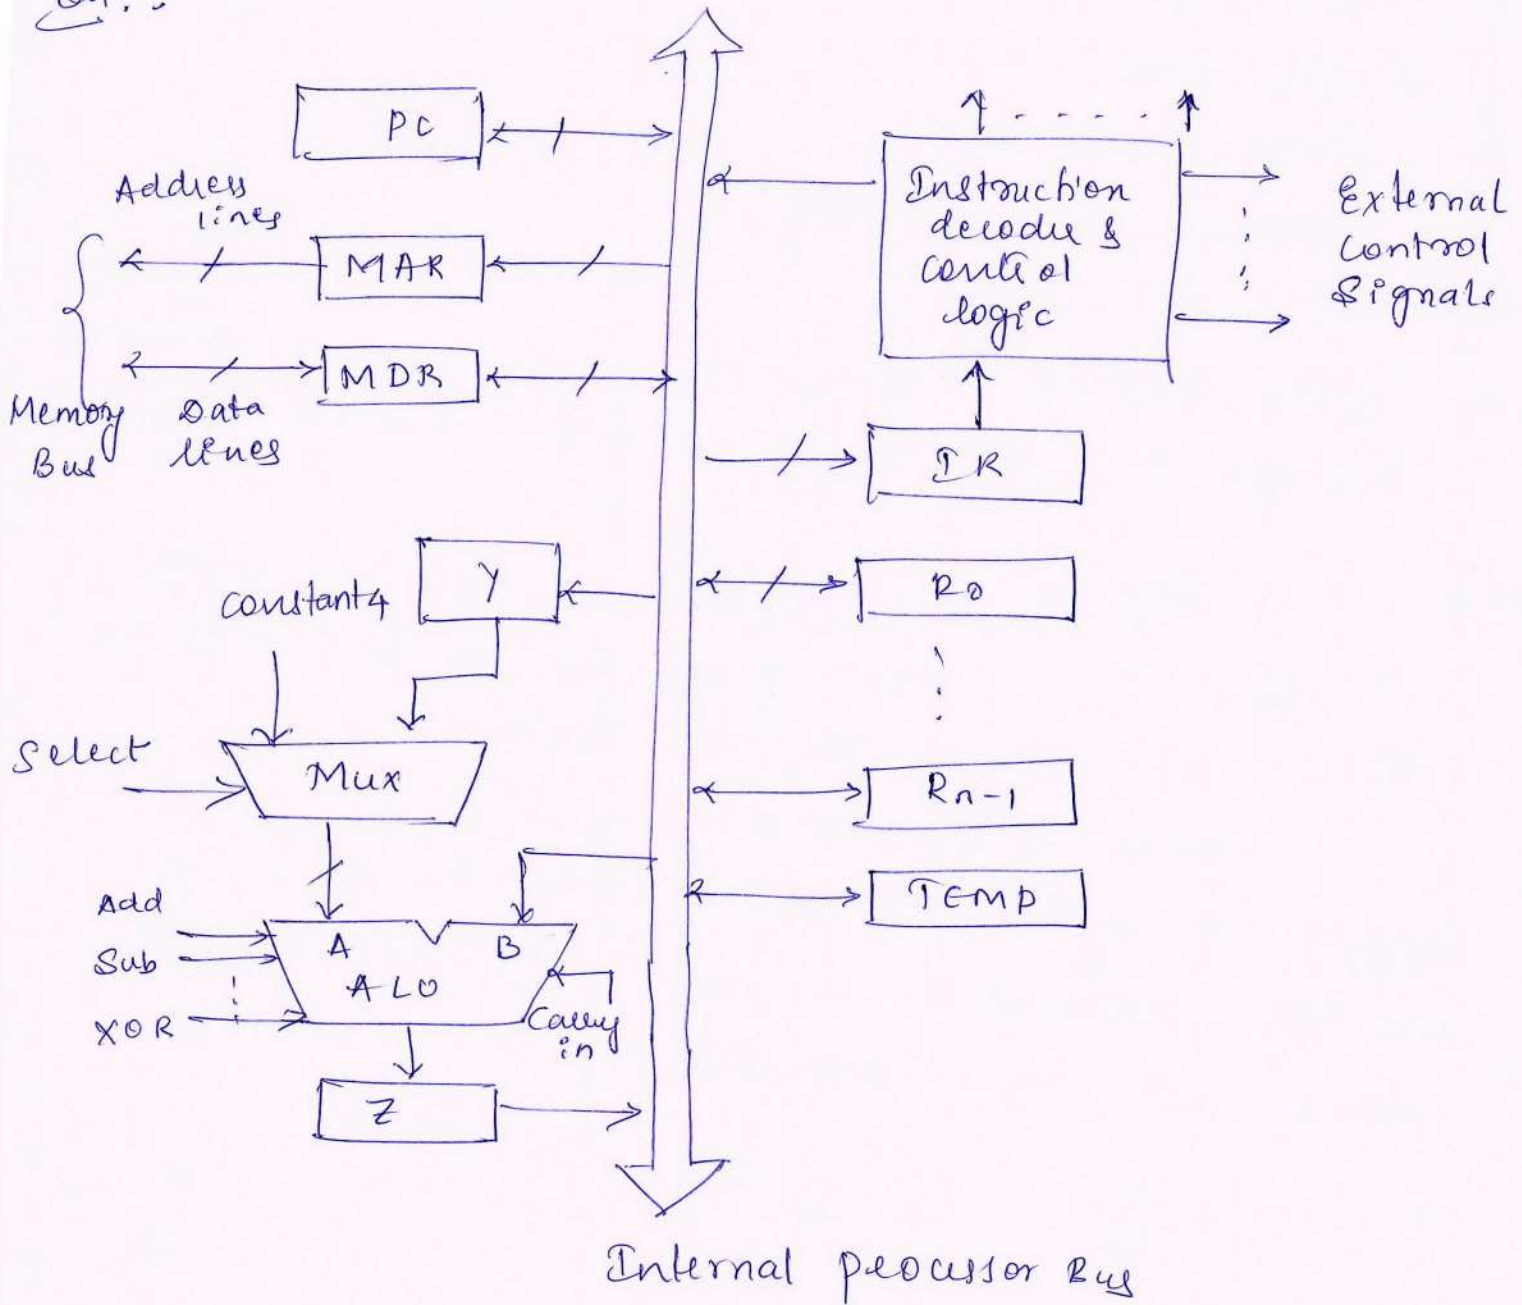 PC
Address
lines
MAR
MDR
Memory
Bus
Data
lines
Instruction
decoder &
control
logic
External
Control
Signals
IR
Y
constant4
R0
Select
Mux
Rn-1
TEMP
Add
Sub
XOR
A
B
ALU
Carry
in
Z
Internal processor Bus